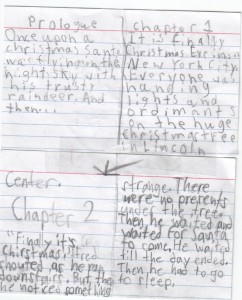 Prologue
Once upon a
christmas santa
was flying on the
night sky with
his trusty
raindeer. And
then...
chapter 1
It is finally
Christmas in
New York city
Everyone was
handing
lights and
ordimants
on the huge
christmas tree
in Lincoln
Center.
Chapter 2
"Finally it's
Christmas,
shouted as he ran
downstairs. But, the
he noticed something
strange. There
were no presents
under the tree.
Then he waited and
waited for Santa
to come. He waited
till the day ended.
Then he had to go
to sleep.